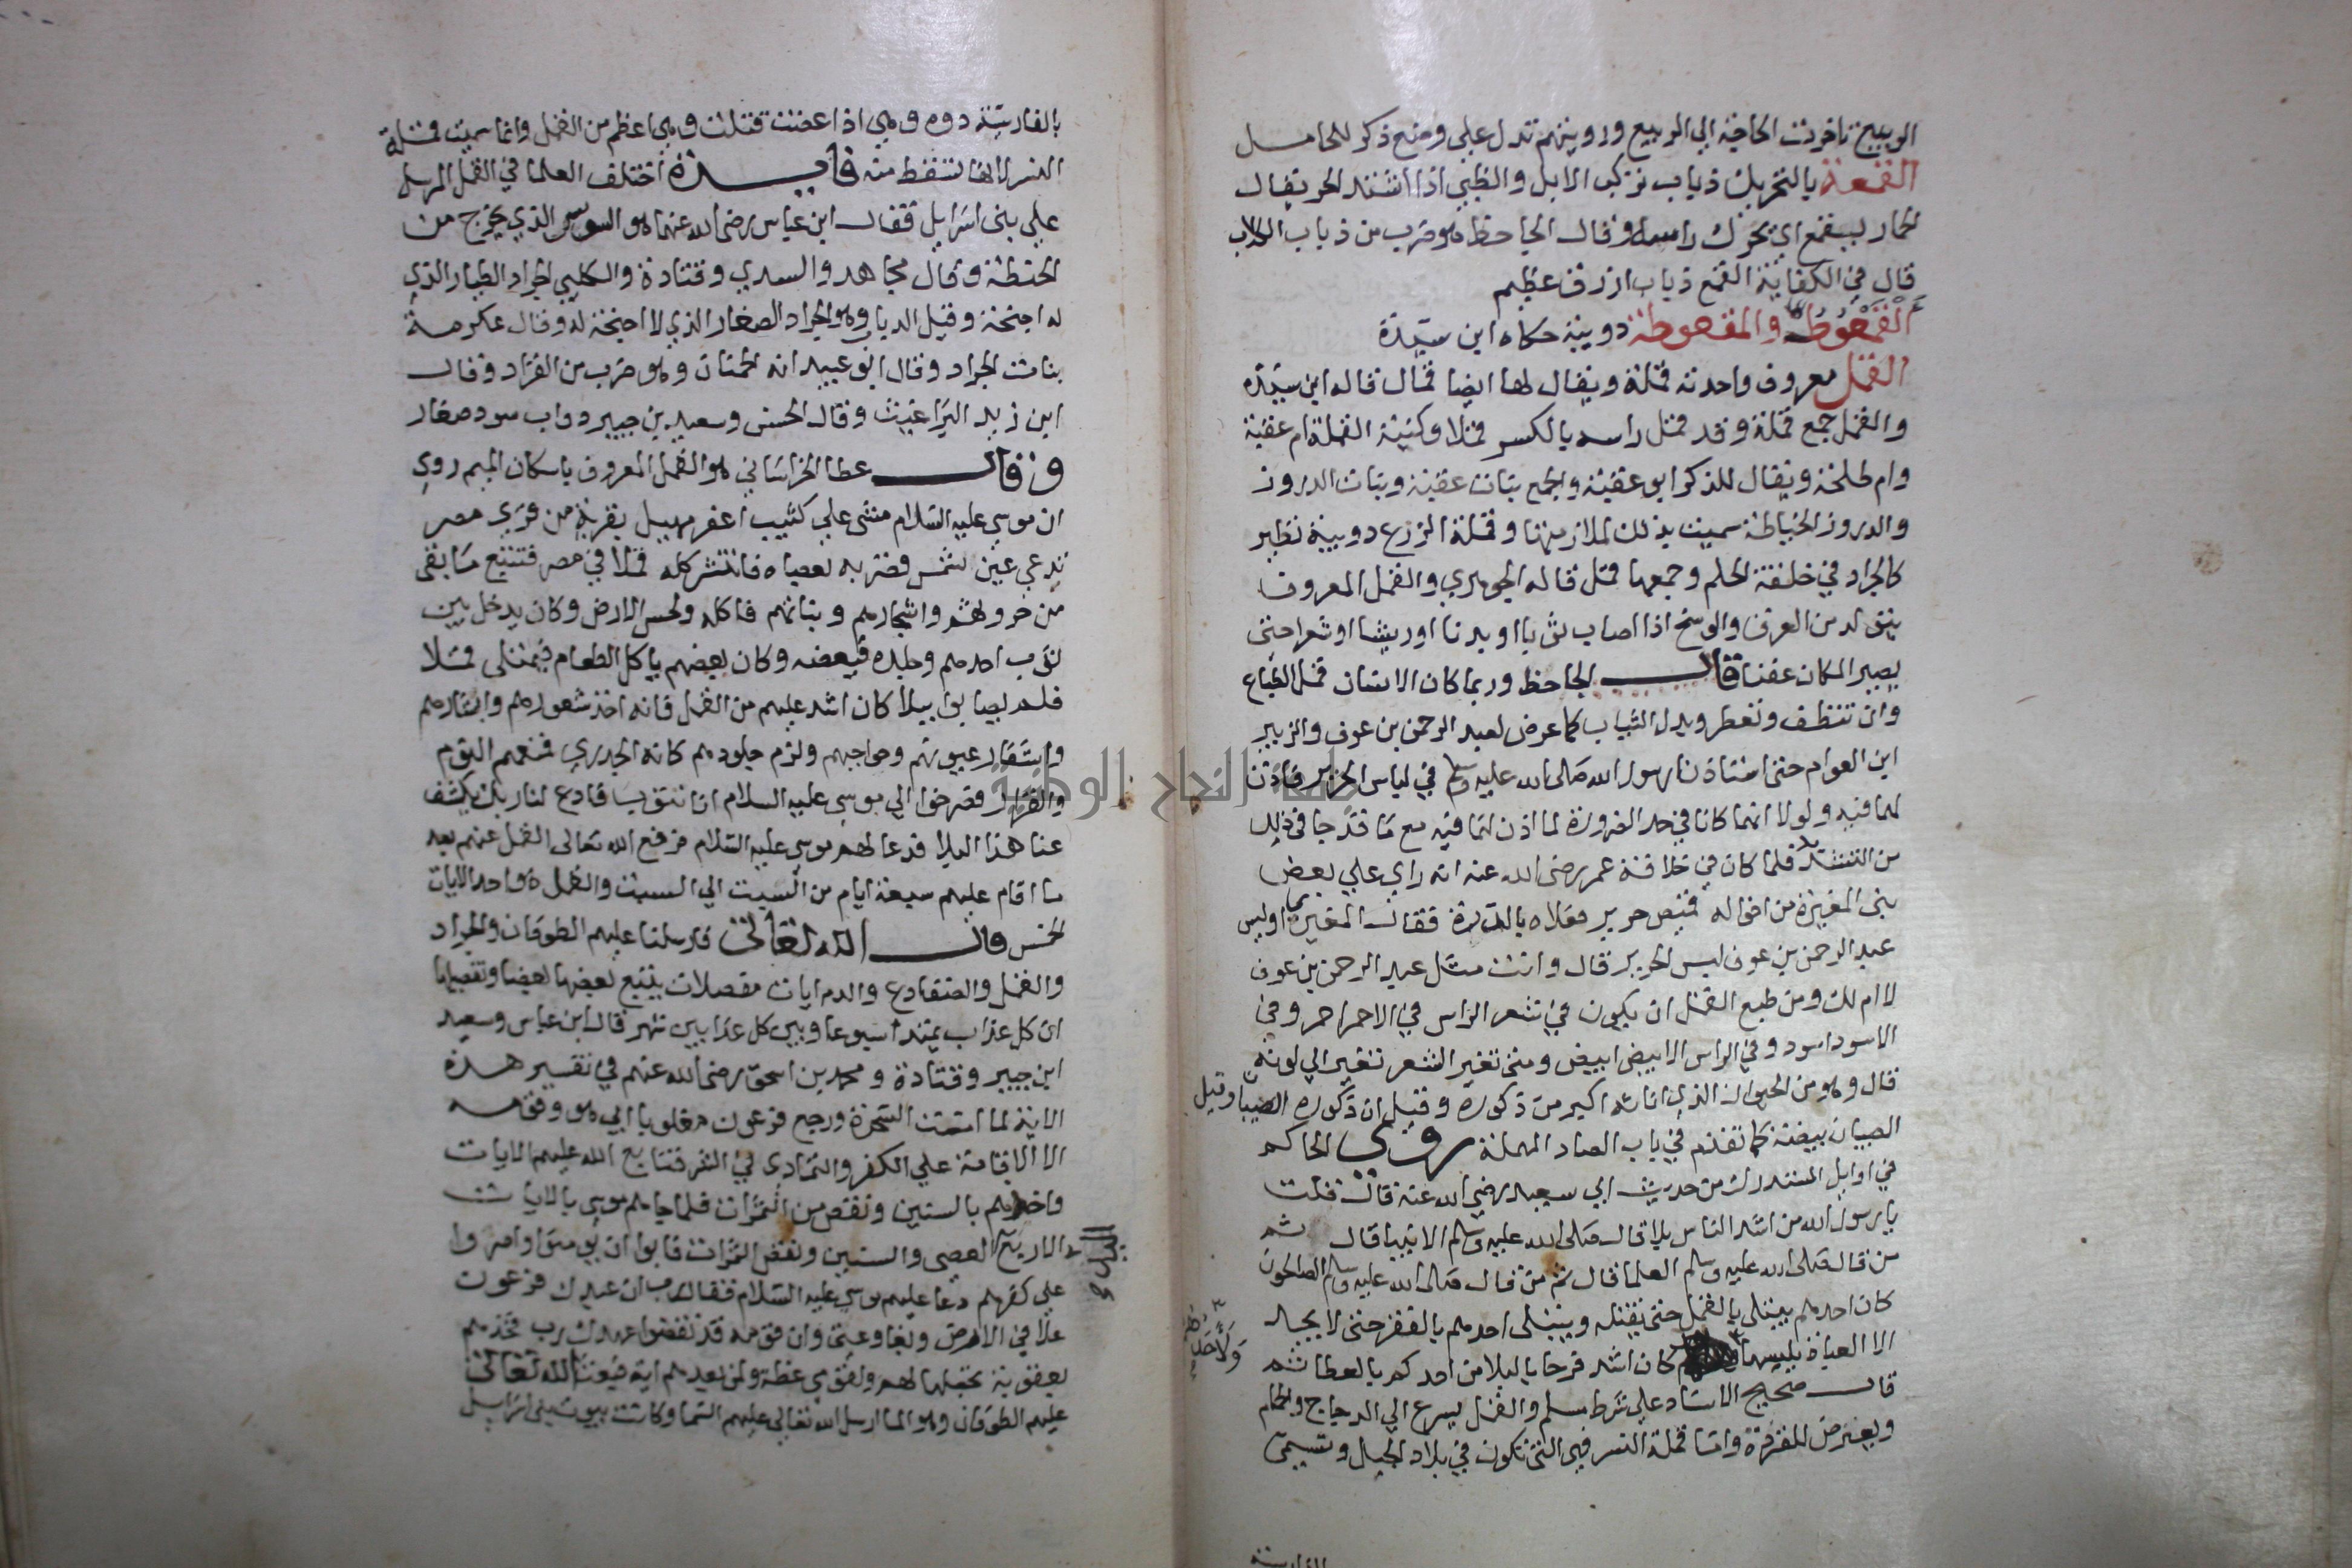 الربيع تاخرت الحاجة الي الربيع ورويتهم تدل علي ومنع ذكر للحامل
القمعة بالتحريك ذباب تركب الابل والظبي اذا اشتد الحر يقال
الحمار يتقمع اي يحرك راسه وقال الجاحظ هو ضرب من ذباب الكلاب
قال في الكفاية القمع ذباب ازرق عظيم
القمعوطة والمقعوطة دويبة حكاه ابن سيدة
القمل معروف واحدته قملة ويقال لها ايضا قمال قاله ابن سيدة
والقمل جمع قملة وقد قمل راسه بالكسر قملا وكنية القملة ام عقبة
وام طلحة ويقال للذكر ابو عقبة والجمع بنات عقبة وبنات الدروز
والدروز الخياطة سميت بذلك لملازمتها وقملة الزرع دويبة تطير
كالجراد في خلقة الحلم وجمعها قمل قاله الجوهري والقمل المعروف
يتولد من العرق والوسخ اذا اصاب ثوبا او بدنا او ريشا او شعرا حتى
يصير المكان عفنا قال الجاحظ وربما كان الانسان قمل الطباع
وان تنظف وتعطر وبدل الثياب كما عرض لعبد الرحمن بن عوف والزبير
ابن العوام حتى استاذنا رسول الله صلى الله عليه وسلم في لباس الحرير فاذن
لهما فيه ولولا انهما كانا في حد الضرورة لما اذن لهما فيه مع ما قد جا في ذلك
من التشدد فلما كان في خلافة عمر رضى الله عنه انه راي علي بعض
بنى المغيرة من اخواله قميص حرير فعلاه بالدرة فقال المغيري اوليس
عبد الرحمن بن عوف لبس الحرير قال وانت مثل عبد الرحمن بن عوف
لا ام لك ومن طبع القمل ان يكون في شعر الراس في الاحمر احمر وفي
الاسود اسود وفي الراس الابيض ابيض ومتى تغير الشعر تغير الي لونه
قال وهو من الحيوان الذي اناثه اكبر من ذكوره وقيل ان ذكوره الصيبا وقيل
الصيبان بيضه كما تقدم في باب الصاد المهملة روى الحاكم
في اوايل المستدرك من حديث ابي سعيد رضي الله عنه قال قلت
يا رسول الله من اشد الناس بلا قال صلى الله عليه وسلم الانبيا قال ثم
من قال صلى الله عليه وسلم العلما قال ثم من قال صلى الله عليه وسلم الصالحون
كان احدهم يبتلى بالقمل حتى يقتله ويبتلى احدهم بالفقر حتى لا يجد
الا العباة يلبسها كان اشد فرحا بالبلا من احدكم بالعطا ثم
ولاحدهم
قال صحيح الاسناد علي شرط مسلم والقمل يسرع الي الدجاج والحمام
ويعرض للقردة واما قملة النسر فهي التي تكون في بلاد الجبال وتسمى
بالفارسية
بالفارسية دوه وهي اذا عضت قتلت وهي اعظم من القمل وانما سميت قملة
النسر لانها تسقط منه فايدة اختلف العلما في القمل المرسل
علي بنى اسرايل فقال ابن عباس رضى الله عنهما هو السوس الذي يخرج من
الحنطة وقال مجاهد والسدي وقتادة والكلبي الجراد الطيار الذي
له اجنحة وقيل الدبا وهو الجراد الصغار الذي لا اجنحة له وقال عكرمة
بنات الجراد وقال ابو عبيد انه الحمنان وهو ضرب من القراد وقال
ابن زيد البراغيث وقال الحسن وسعيد بن جبير دواب سود صغار
وقال عطا الخراساني هو القمل المعروف باسكان الميم روي
ان موسى عليه السلام مشى علي كثيب اعفر مهيل بقرية من قرى مصر
تدعي عين شمس فضربه بعصاه فانتشر كله قملا في مصر فتتبع ما بقى
من حروثهم واشجارهم ونباتهم فاكله ولحس الارض وكان يدخل بين
ثوب احدهم وجلده فيعضه وكان بعضهم ياكل الطعام فيمتلى قملا
فلم يصابوا ببلا كان اشد عليهم من القمل فانه اخذ شعورهم وابشارهم
واشفار عيونهم وحواجبهم ولزم جلودهم كانه الجدري فمنعهم النوم
والقرار فصرخوا الي موسى عليه السلام انا نتوب فادع لنا ربك يكشف
عنا هذا البلا فدعا لهم موسى عليه السلام فرفع الله تعالى القمل عنهم بعد
ما اقام عليهم سبعة ايام من السبت الي السبت والقمل هو احد الايات
الخمس قال الله تعالى فارسلنا عليهم الطوفان والجراد
والقمل والضفادع والدم ايات مفصلات يتبع بعضها بعضا وتفصيلها
ان كل عذاب يمتد اسبوعا وبين كل عذابين شهر قال ابن عباس وسعيد
ابن جبير وقتادة ومحمد بن اسحق رضى الله عنهم في تفسير هذه
الاية لما امنت السحرة ورجع فرعون مغلوبا ابي هو وقومه
الا الاقامة علي الكفر والتمادي في الشر فتابع الله عليهم الايات
واخذهم بالسنين ونقص من الثمرات فلما جاهم موسى بالايات
الاربع العصى والسنين ونقص الثمرات فابوا ان يومنوا واصروا
علي كفرهم دعا عليهم موسى عليه السلام فقال رب ان عبدك فرعون
علا في الارض وبغا وعتى وان قومه قد نقضوا عهدك رب فخذهم
بعقوبة تجعلها لهم ولقومي عظة ولمن بعدهم اية فبعث الله تعالى
عليهم الطوفان وهو الما ارسل الله تعالى عليهم السما وكانت بيوت بنى اسرايل
جامعة النجاح الوطنية